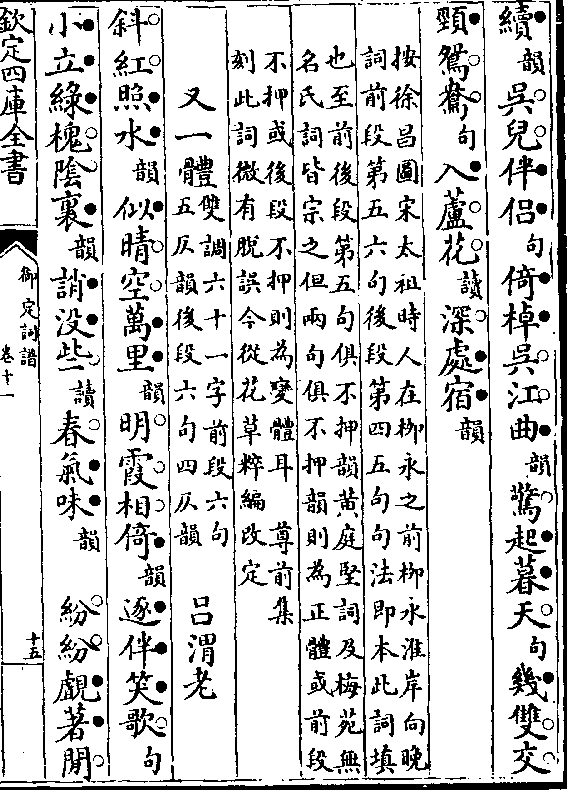 續韻吳兒伴侣句倚棹吳江曲韻驚起暮天句幾雙交
頸鴛鴦句入蘆花讀深處宿韻
按徐昌圖宋太祖時人在柳永之前柳永淮岸向晚
詞前段第五六句後段第四五句句法即本此詞填
也至前後段第五句俱不押韻黄庭堅詞及梅苑無
名氏詞皆宗之但兩句俱不押韻則為正體或前段
不押或後段不押則為變體耳　尊前集
刻此詞微有脱誤今從花草粹編改定
又一體雙調六十一字前段六句
五仄韻後段六句四仄韻　吕渭老
斜紅照水韻似晴空萬里韻明霞相倚韻逐伴笑歌句
小立綠槐陰裏韻誚没些讀春氣味韻　紛紛覰著閒
欽定四庫全書
御定詞譜
卷十一
十五